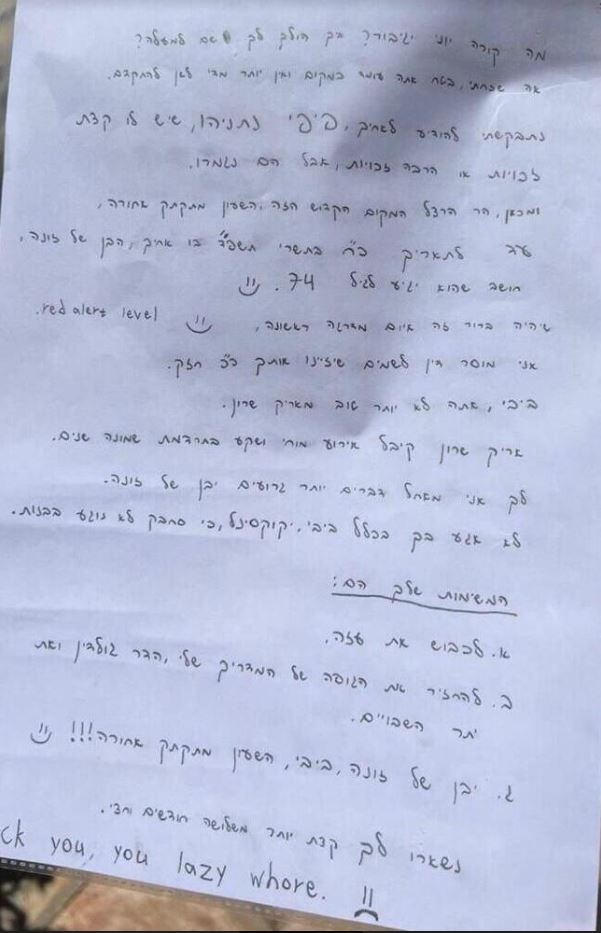 מה קורה יוני יגיבור? איך הולך לך שם למעלה?
אה שכחתי, בטח אתה עומד במקום ואין יותר מדי לאן להתקדם.
נתבקשתי להודיע לאחיך, פיפי נתניהו, שיש לו קצת
זכויות או הרבה זכויות, אבל הם נגמרו.
ומכאן, הר הרצל המקום הקדוש הזה, השעון מתקתק אחורה,
עד לתאריך כ״ח בתשרי תשפ״ד בו אחיך, הבן של זונה,
חושב שהוא יגיע לגיל 74.
שיהיה ברור זה איום מדרגה ראשונה, red alert level.
אני מוסר דין לשמים שיזיינו אותך כ״כ חזק.
ביבי, אתה לא יותר טוב מאריק שרון.
אריק שרון קיבל אירוע מוחי ושקע בתרדמת שמונה שנים.
לך אני מאחל דברים יותר גרועים יבן של זונה.
לא אגע בך בכלל ביבי, יקוקסינל, כי סחבק לא נוגע בבנות.
המשימות שלך הם:
א. לכבוש את עזה.
ב. להחזיר את הגופה של המדריך שלי, הדר גולדין ואת
יתר השבויים.
ג. יבן של זונה, ביבי, השעון מתקתק אחורה!!!
נשארו לך קצת יותר משלושה חודשים וחצי.
ck you, you lazy whore.